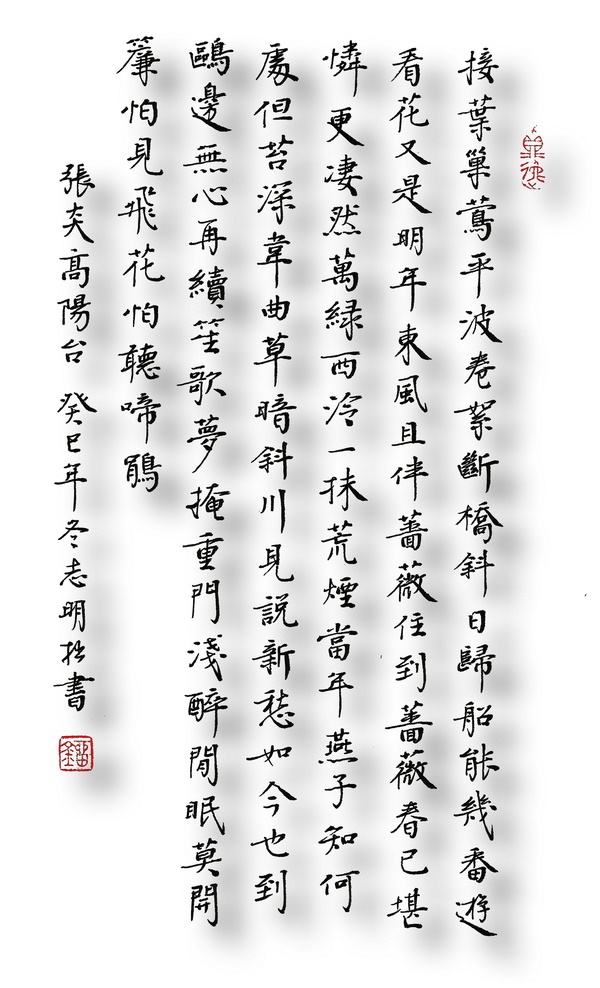 接葉巢鶯平波卷絮斷橋斜日歸船能幾番遊
看花又是明年東風且伴薔薇住到薔薇春已堪
憐更凄然萬緑西泠一抹荒煙當年燕子知何
處但苔深韋曲草暗斜川見説新愁如今也到
鷗邊無心再續笙歌夢掩重門淺醉閒眠莫開
簾怕見飛花怕聽啼鵑
張炎高陽台 癸巳年冬志明拙書